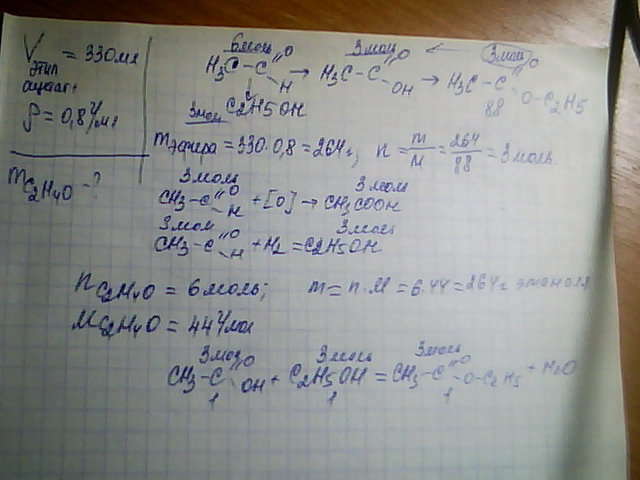 V этил ацетат = 330 мл
ρ = 0,8 г/мл
m C2H4O - ?
6 моль 3 моль ← 3 моль
H3C-C=O H → H3C-C=O OH → H3C-C=O O-C2H5
3 моль C2H5OH 88
m эфира = 330·0,8 = 264 г, n = m/M = 264/88 = 3 моль.
3 моль 3 моль
CH3-C=O H + [O] → CH3COOH
3 моль 3 моль
CH3-C=O H + H2 = C2H5OH
n C2H4O = 6 моль; m = n·M = 6·44 = 264 г этаналя
M C2H4O = 44 г/мол
3 мол 3 моль 3 моль
CH3-C=O OH + C2H5OH = CH3-C=O O-C2H5 + H2O
1 1 1